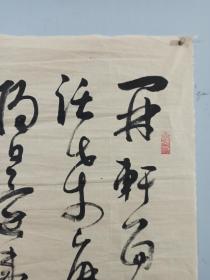 开轩面
话桑麻
阳日还来